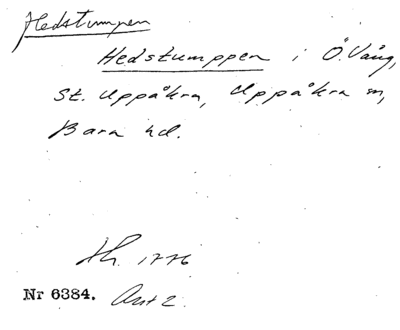 Hedstumpen
Hedstumppen i Ö. Vång,
St. Uppåkra, Uppåkra sn,
Bara hd.
Ah. 1776
Nr 6384. Akt 2.